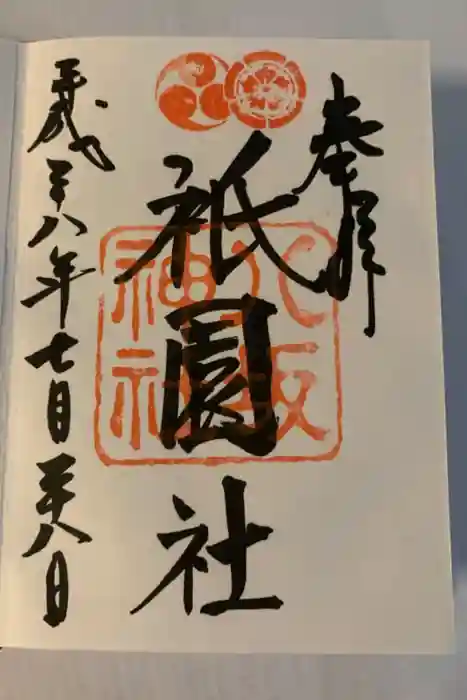 奉拝
祇園社
八坂神社
平成二十八年七月二十八日